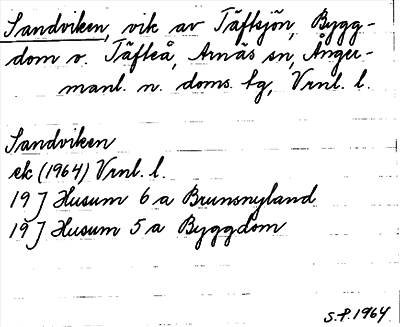 Sandviken, vik av Täftsjön, Bygg-
dom o. Täfteå, Arnäs sn, Ånger-
manl. n. doms. tg, Vrnl. l.
Sandviken
ek (1964) Vrnl. l.
19 J Husum 6 a Brunsnyland
19 J Husum 5 a Byggdom
S.P. 1964